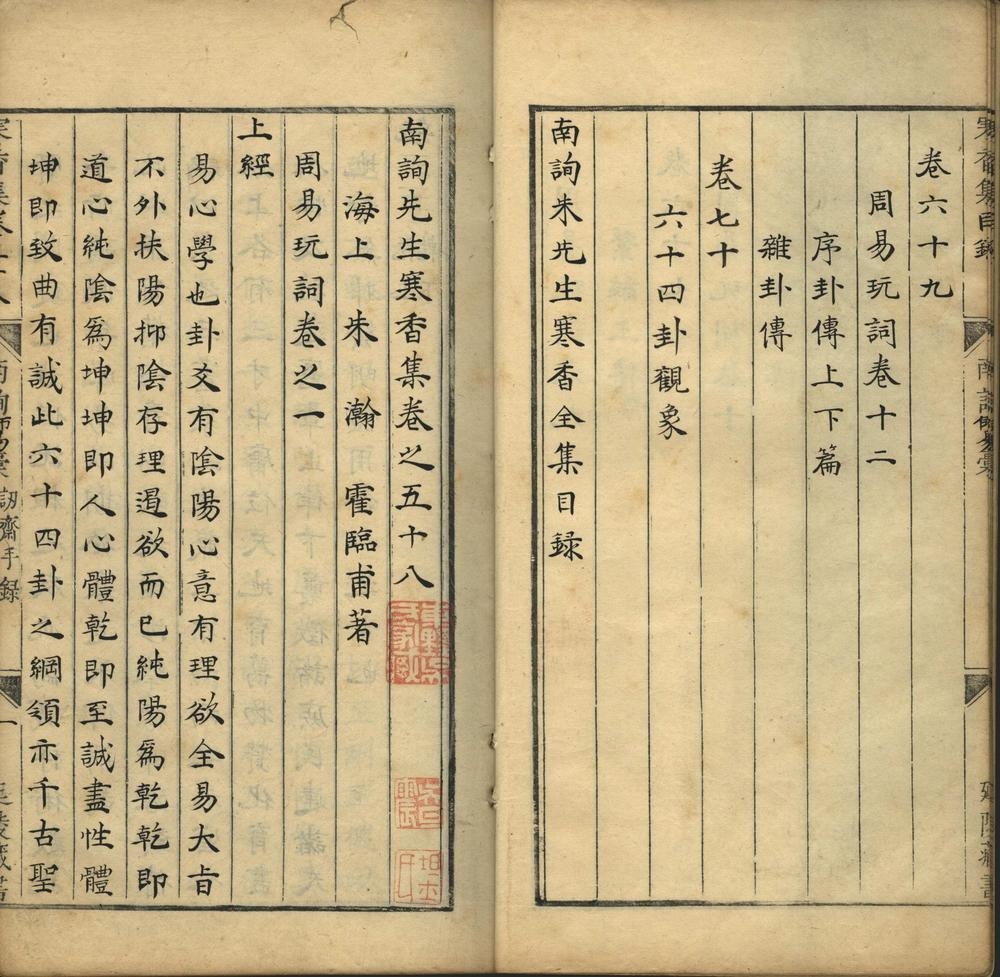 寒香集目錄
卷六十九
周易玩詞卷十二
序卦傳上下篇
雜卦傳
卷七十
六十四卦觀象
南詢朱先生寒香全集目録
南詢先生寒香集卷之五十八
海上朱瀚霍臨甫著
周易玩詞卷之一
上經
易心學也卦爻有陰陽心意有理欲全易大旨
不外扶陽抑陰存理遏欲而已純陽爲乾乾即
道心純陰爲坤坤即人心體乾即至誠盡性體
坤即致曲有誠此六十四卦之綱領亦千古聖
訒齋手録
一